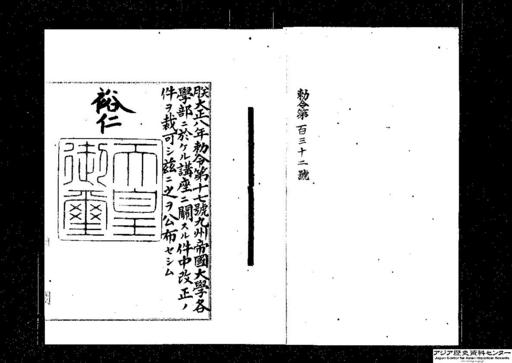 勅令第百三十二號
朕大正八年勅令第十七號九州帝國大學各
學部ニ於ケル講座ニ關スル件中改正ノ
件ヲ裁可シ茲ニ之ヲ公布セシム
裕仁
天皇
御璽
アジア歴史資料センター
Japan Center for Asian Historical Records